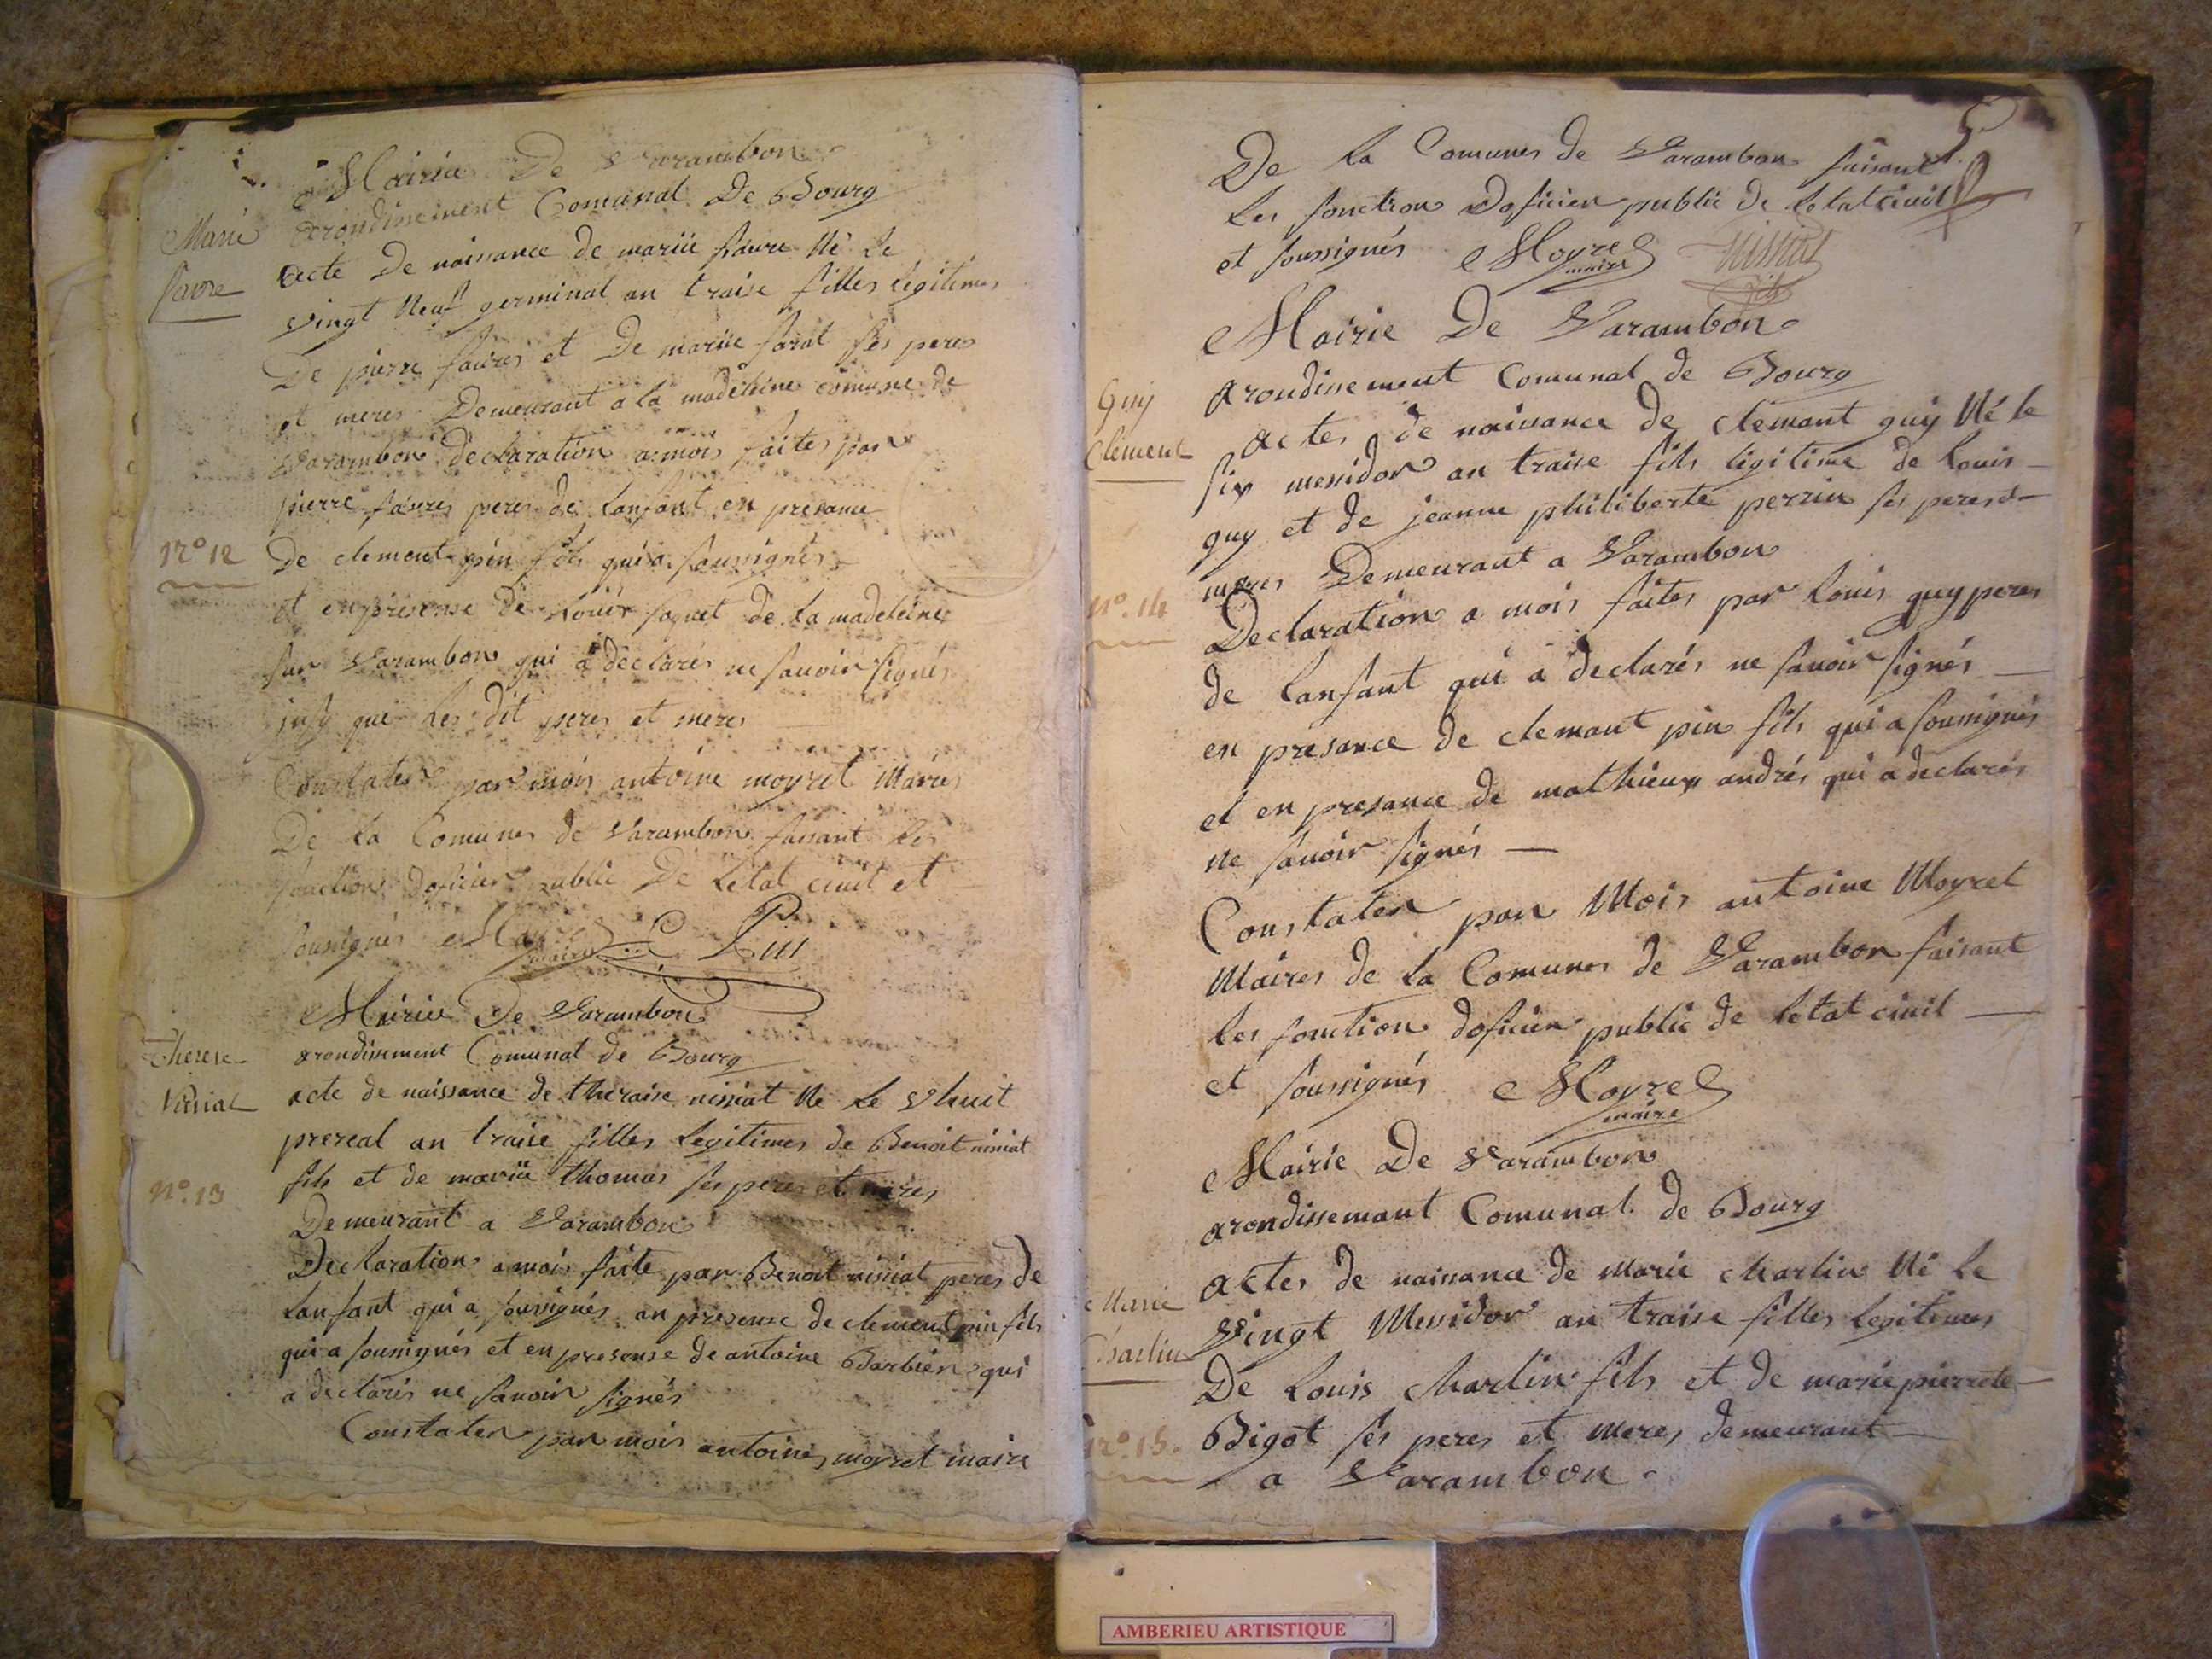 Mairie De Varambon
arondinement Comunal De Bourg
Marie
favre
acte De naissance de mariie favre Né Le
vingt Neuf germinal an traise filles legitimes
De pierre favres et De mariie forat ses peres
et meres Demeurant a la madeleine comune de
Varambon Declaration a mois faites par
pierre favres peres de Lanfant en presance
N° 12
De clement pin fils qui a sousignés
et en presense de Louis joquet de la madeleine
sur Varambon qui a declarés ne savoir signés
insy que les dit peres et meres
Constater par mois antoine moyret Maires
De La Comunes de Varambon faisant les
fonction doficier public De Letat civil et
sousignés Moyret maire Pin
Mairie De Varambon
arondinement Comunal de Bourg
Therese
Nissiat
acte de naissance de theraise nissiat Né Le vhuit
prereal an traise filles Legitimes de Benoit nissiat
fils et de mariie thomas ses peres et meres
N° 13
Demeurant a Varambon
Declaration a mois faite par Benoit nissiat peres de
Lanfant qui a sousignés an presense de clement pin fils
qui a sousignés et en presense de antoine Barbier qui
a declarés ne savoir signés
Constater par mois antoine moyret maire
5
De La Comunes de Varambon faisant
Les fonction Doficier public de Letat civil
et soussignés Moyret maire Nissiat fils
Mairie De Varambon
Arondinement Comunal de Bourg
Guy
Clement
actes de naissance de clemant guy Né le
six messidor an traise fils legitime de Louis
guy et de jeanne philiberte perrier ses peres
meres Demeurant a Varambon
N° 14
Declaration a mois faites par Louis guy peres
de Lanfant qui a declarés ne savoir signés
en presance de clemant pin fils qui a sousignés
et en presance de mathieux andrés qui a declarés
ne savoir signés
Constater par Mois antoine Moyret
Maires de La Comunes de Varambon faisant
les fonction doficier public de letat civil
et soussignés Moyret
maire
Mairie De Varambon
arondissemant Comunal de Bourg
actes de naissance de marie Martin Né Le
Marie
Martin
Vingt Messidor an traise filles legitimes
De Louis Martin fils et de marie pierrete
N° 15.
Bigot ses peres et meres demeurant
a Varambon
AMBERIEU ARTISTIQUE